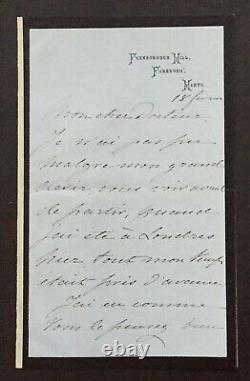 Farnborough Hill,
Farnboro',
Hants.
18 février
Mon cher Docteur,
Je n'ai pas pu
malgré mon grand
désir vous voir avant
de partir, quand
j'ai été à Londres
hier tout mon temps
était pris d'avance
J'ai eu comme
vous le pensez bien
© thebetter.it.com